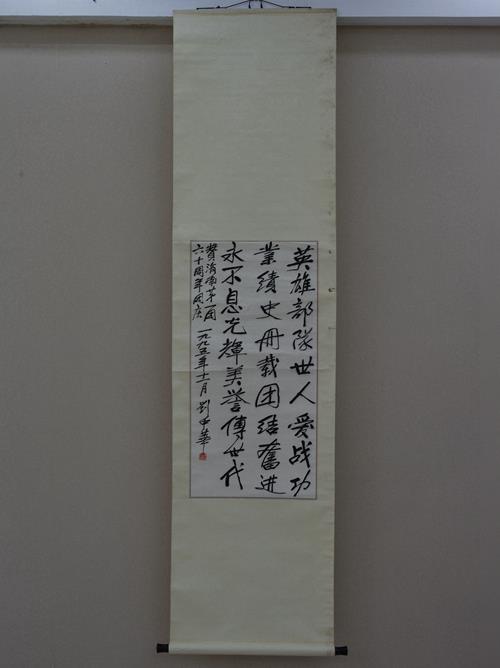 英雄部隊世人爱战功
業績史册載团结奮进
永不息光輝美誉傳世代
賀濟南第一团
六十周年团庆 一九九五年十一月 劉中華